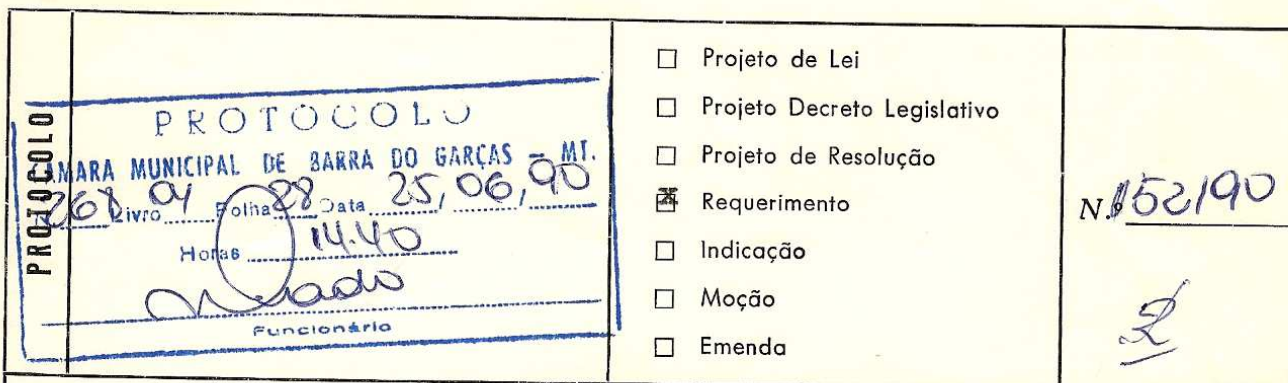 PROTOCOLO
PROTOCOLO
CÂMARA MUNICIPAL DE BARRA DO GARÇAS - MT.
268 Livro 04 Folha 28 Data 25, 06, 90
Horas 14.40
Funcionário
☐ Projeto de Lei
☐ Projeto Decreto Legislativo
☐ Projeto de Resolução
☒ Requerimento
☐ Indicação
☐ Moção
☐ Emenda
N.º 152/90